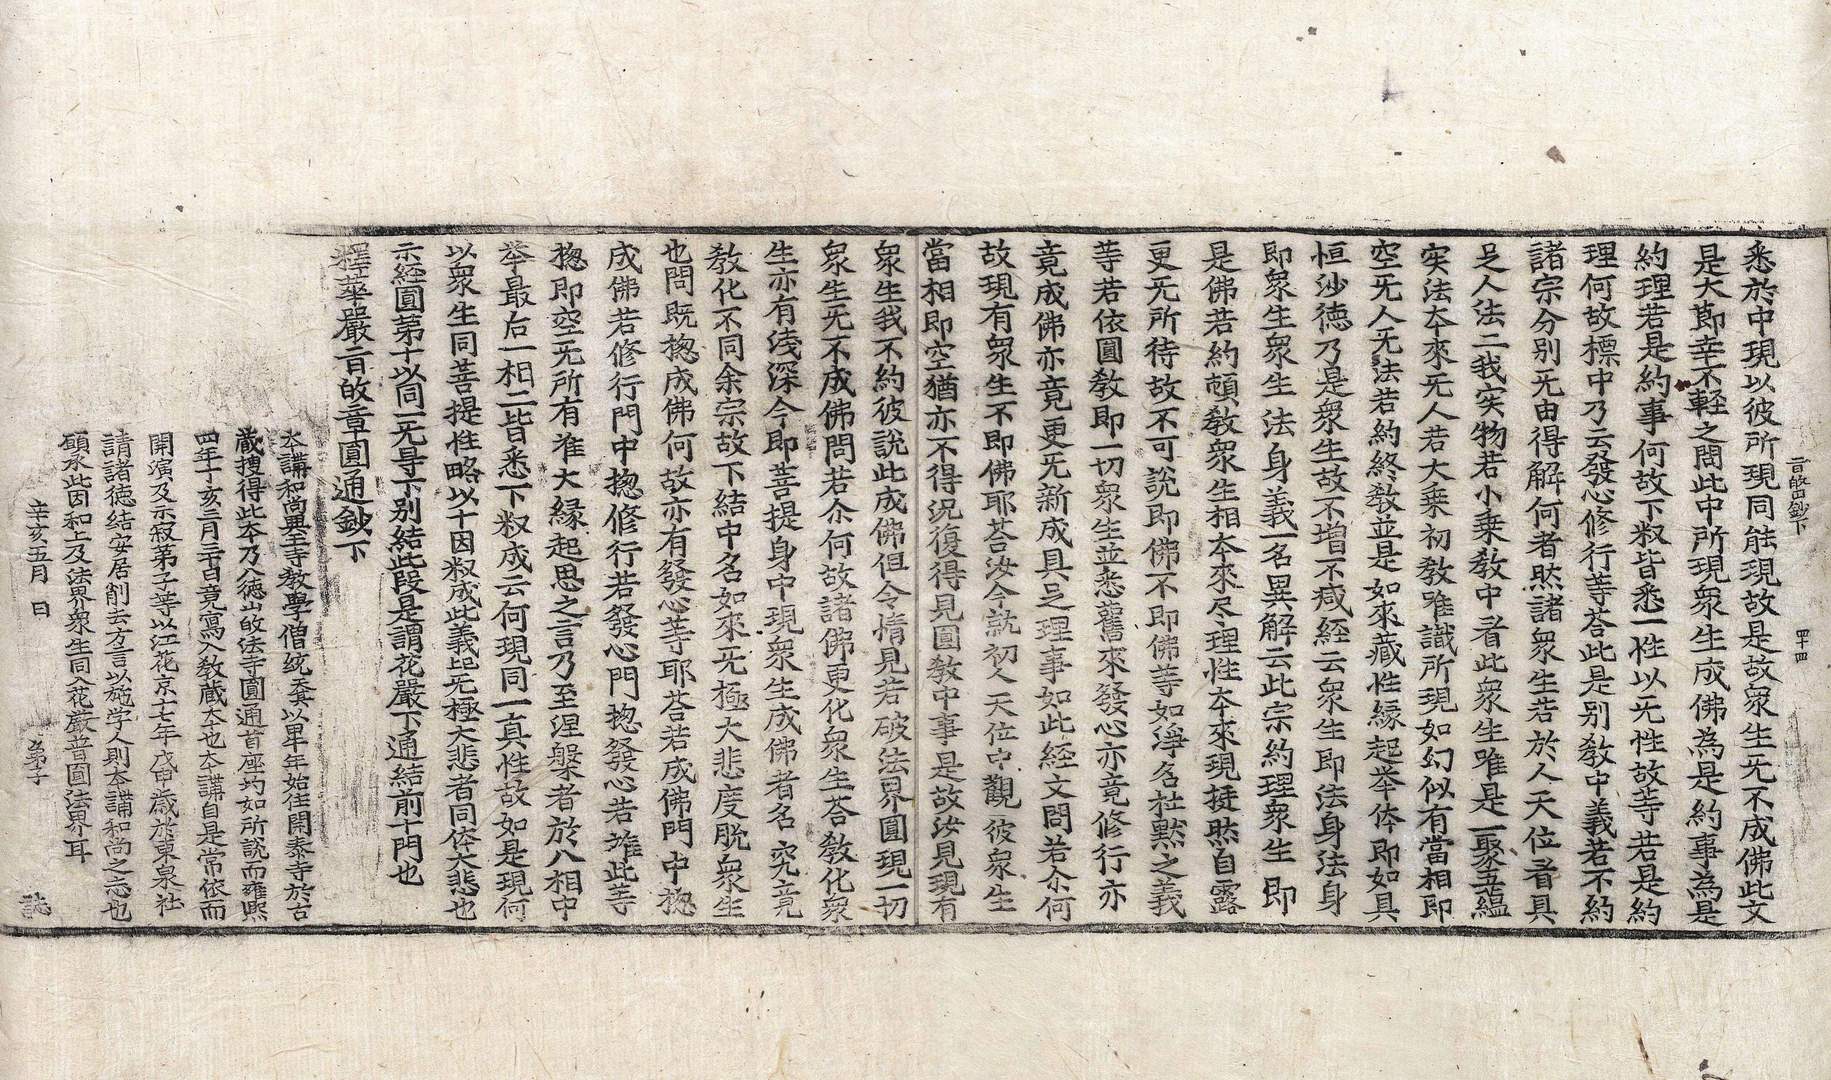 旨皈鈔下
四十四
悉於中現以彼所現同能現故是故衆生无不成佛此文
是大節幸不輕之問此中所現衆生成佛為是約事為是
約理若是約事何故下叔皆悉一性以无性故等若是約
理何故標中乃云發心修行等荅此是別教中義若不約
諸宗分別无由得解何者㷊諸衆生若於人天位㸔具
足人法二我实物若小乗教中㸔此衆生唯是一聚五蕴
实法夲來无人若大乗初教唯識所現如幻似有當相即
空无人无法若約終教並是如來藏性縁起举体即如具
恒沙徳乃是衆生故不增不减経云衆生即法身法身
即衆生衆生法身義一名異解云此宗約理衆生即
是佛若約頓教衆生相夲來尽理性夲來現挺㷊自露
更无所待故不可說即佛不即佛等如淨名杜黙之義
等若依圓教即一切衆生並悉舊來發心亦竟修行亦
竟成佛亦竟更无新成具足理事如此経文問若尒何
故現有衆生不即佛耶荅汝今就初人天位中觀彼衆生
當相即空猶亦不得況復得見圓教中事是故汝見現有
衆生我不約彼說此成佛但令情見若破法界圓現一切
衆生无不成佛問若尒何故諸佛更化衆生荅教化衆
生亦有浅深今即菩提身中現衆生成佛者名究竟
教化不同余宗故下結中名如來无極大悲度脫衆生
也問既揔成佛何故亦有發心等耶荅若成佛門中揔
成佛若修行門中揔修行若發心門揔發心若㨿此等
揔即空无所有唯大縁起思之言乃至涅槃者於八相中
举最后一相二皆悉下叔成云何現同一真性故如是現何
以衆生同菩提性略以十因叔成此義起无極大悲者同体大悲也
示経圓第十以同一无㝵下別結此段是謂花嚴下通結前十門也
釋華嚴旨皈章圓通鈔下
夲講和尚興王寺教學僧統天其以卑年始住開泰寺於古
藏搜得此夲乃八徳山皈法寺圓通首座均如所說而雍熙
四年丁亥三月三十日竟寫入教蔵夲也夲講自是常依而
開演及示寂弟子等以江花京十七年戊申歳於東泉社
請諸徳結安居削去方言以施学人則夲講和尚之志也
願承此因和上及法界衆生同入花嚴普圓法界耳
辛亥五月　日　弟子　誌